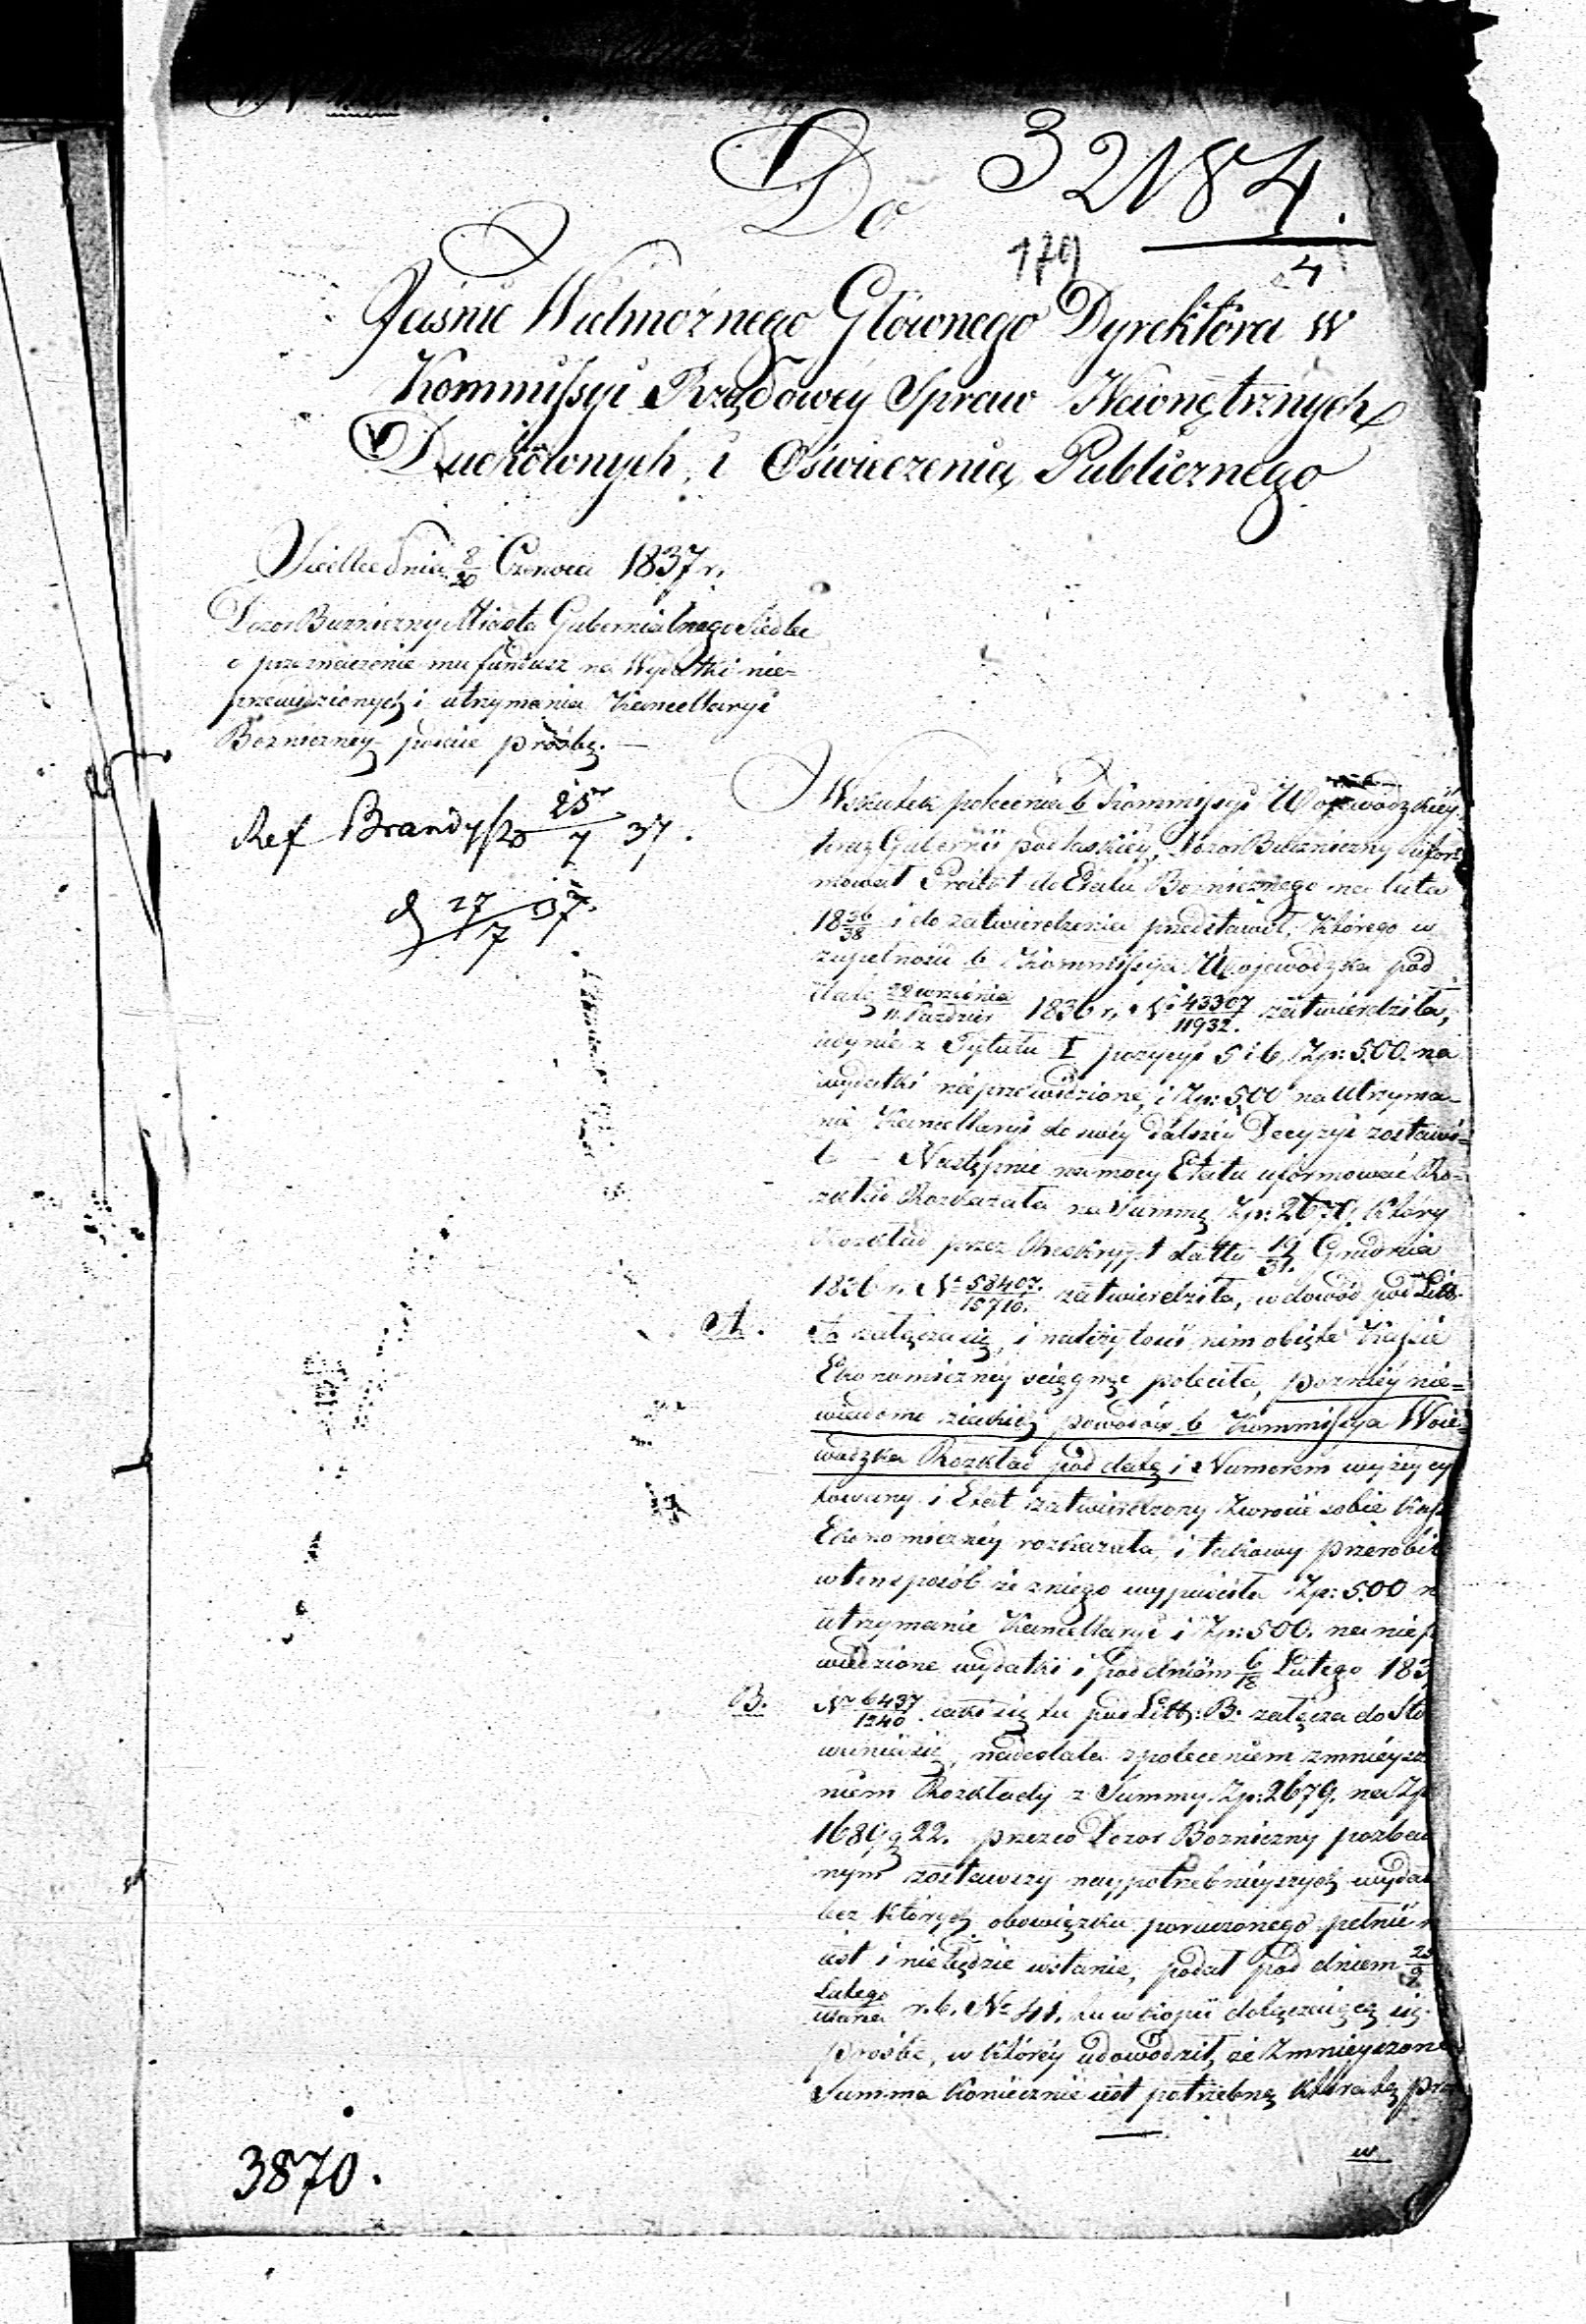 Do
32184.
179
4
Jaśnie Wielmożnego Głównego Dyrektora w
Kommissyi Rządowey Spraw Wewnętrznych
Duchównych, i Oświecenia Publicznego
Siedlce dnia 8/20 Czerwca 1837 r.
Dozor Bużniczny Miasta Gubernialnego Siedlec
o przeznaczenie mu funduszu na Wydatki nie=
przewidzionych i utrzymania Kancellaryi
Bozniczney poście próśbę. —
Ref Brandysz 25/7 37.
27/7 37.
Wskutek polecenia b Kommissyi Wojewodzkiéy
teraz Gubernii podlaskiéy, Dozor Bużniczny ufor=
mował Proiekt do Etatu Bożnicznego na lata
1836/38 i do zatwierdzenia predstawił, którego w
zupełności b Kommissya Wojewodzka pod
datą 29 września/11 Paździer 1836 r. N: 43307/11932. zatwierdziła,
iedynie z Tytułu I pozycyi 5 i 6, Zp: 500. na
wydatki nieprzewidzione, i Zp: 500 na utrzyma=
nie Kancellaryi do swéy dalszéy Decyzyi zostawi=
ł — Następnie na mocy Etatu uformować Ro=
zkład Rozkazała na Summę Zp: 2679. który
Rozkład przez Reskrypt datty 19/31. Grudnia
1836 r. N: 58407./15716. zatwierdziła, w dowód pod Litt.
A.
A załącza się, i należytość nim obiętą Kassie
Ekonomicznéy ściągnąć poleciła, poznéy nie=
wiadomo z iakich powodów b Kommissya Woie=
wodzka Rozkład pod datą i Numerem wyżéy cy
towany i Etat zatwierdzony zwrócić sobie Kass
Ekonomicznéy rozkazała, i takowy przerobił
w ten sposób że z niego wypuściła Zp: 500 n
utrzymanie Kancellaryi i Zp: 500. na niep
widzione wydatki i pod dniem 6/18 Lutego 183
B.
N: 6437/1340. iaki się tu pod Litt: B. załącza do Sto
wania się, nadesłała z poleceniem zmnieysze
niem Rozkładu z Summy Zp: 2679. na Zp
1689 g 22. przezco Dozor Bozniczny pozbaw
nym zostawszy naypotrzebnieyszych wydat
bez których obowiązku poruczonego pełnić n
iest i niebędzie wstanie, podał pod dniem 25/9
Lutego/Marca r. b. N: 41. tu w kopii dołączaiącą się
prośbę, w któréy udowódnił, że Zmnieyszona
Summa koniecznie iest potrzebną którą tą pro
w
3870.